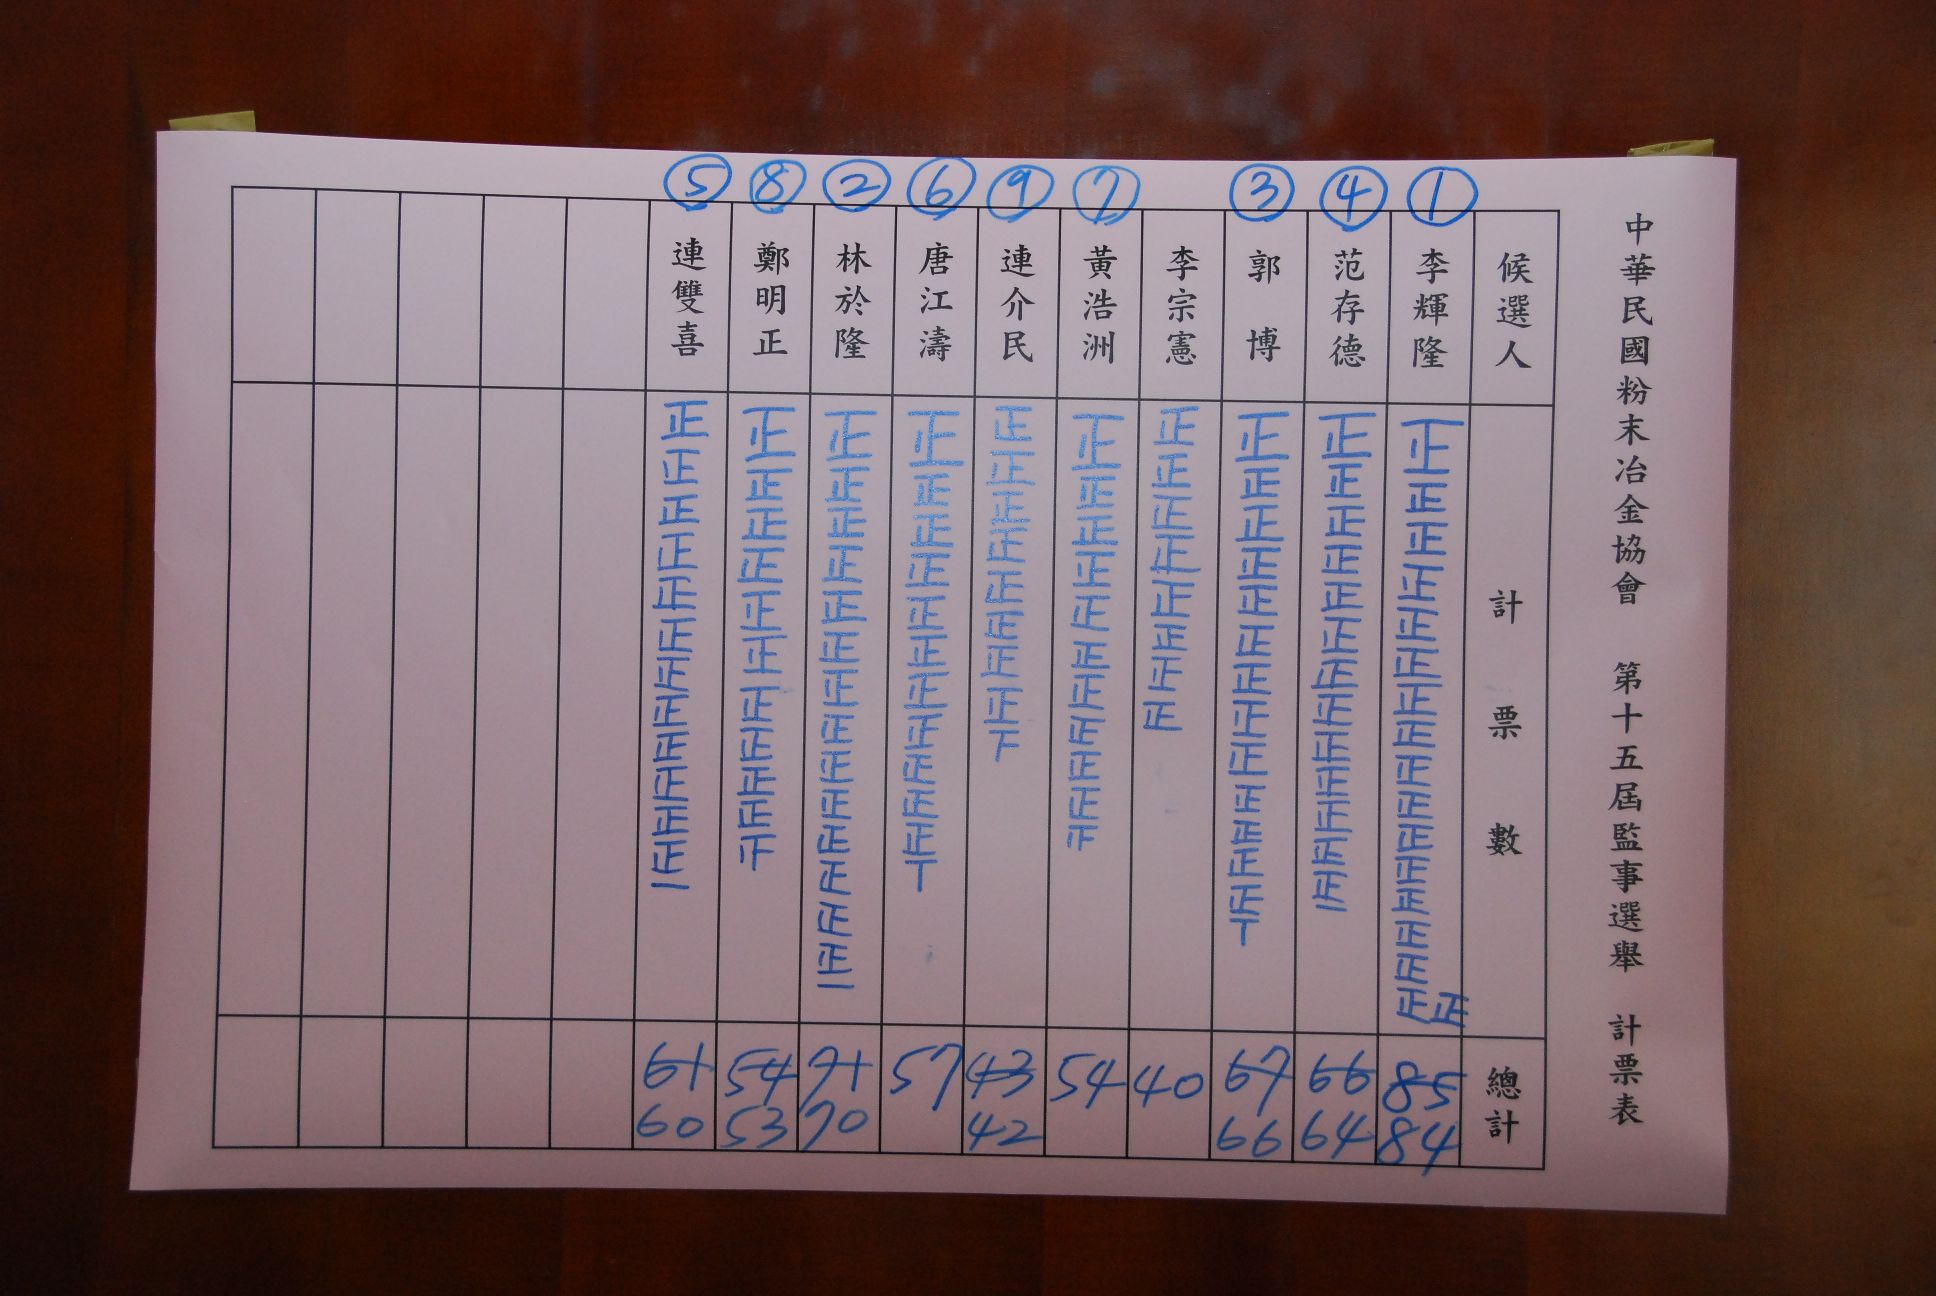 中華民國粉末冶金協會 第十五屆監事選舉 計票表
候選人
計票數
總計
①
李輝隆
正正正正正正正正正正正正正正正正正
85
84
④
范存德
正正正正正正正正正正正正正一
66
64
③
郭博
正正正正正正正正正正正正正丅
67
66
李宗憲
正正正正正正正正
40
⑦
黃浩洲
正正正正正正正正正正
54
⑨
連介民
正正正正正正正正下
43
42
⑥
唐江濤
正正正正正正正正正正正丅
57
②
林於隆
正正正正正正正正正正正正正正一
71
70
⑧
鄭明正
正正正正正正正正正正
54
53
⑤
連雙喜
正正正正正正正正正正正正一
61
60